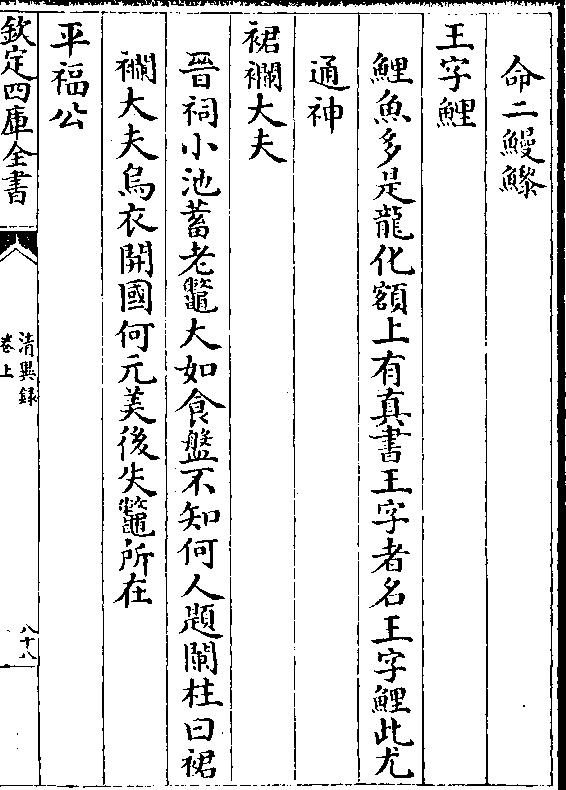 命二鰻鱺
王字鯉
鯉魚多是龍化額上有真書王字者名王字鯉此尤
通神
裙襴大夫
晉祠小池蓄老鼈大如食盤不知何人題闌柱曰裙
襴大夫烏衣開國何元美後失鼈所在
平福公
欽定四庫全書
清異録
卷上
八十八